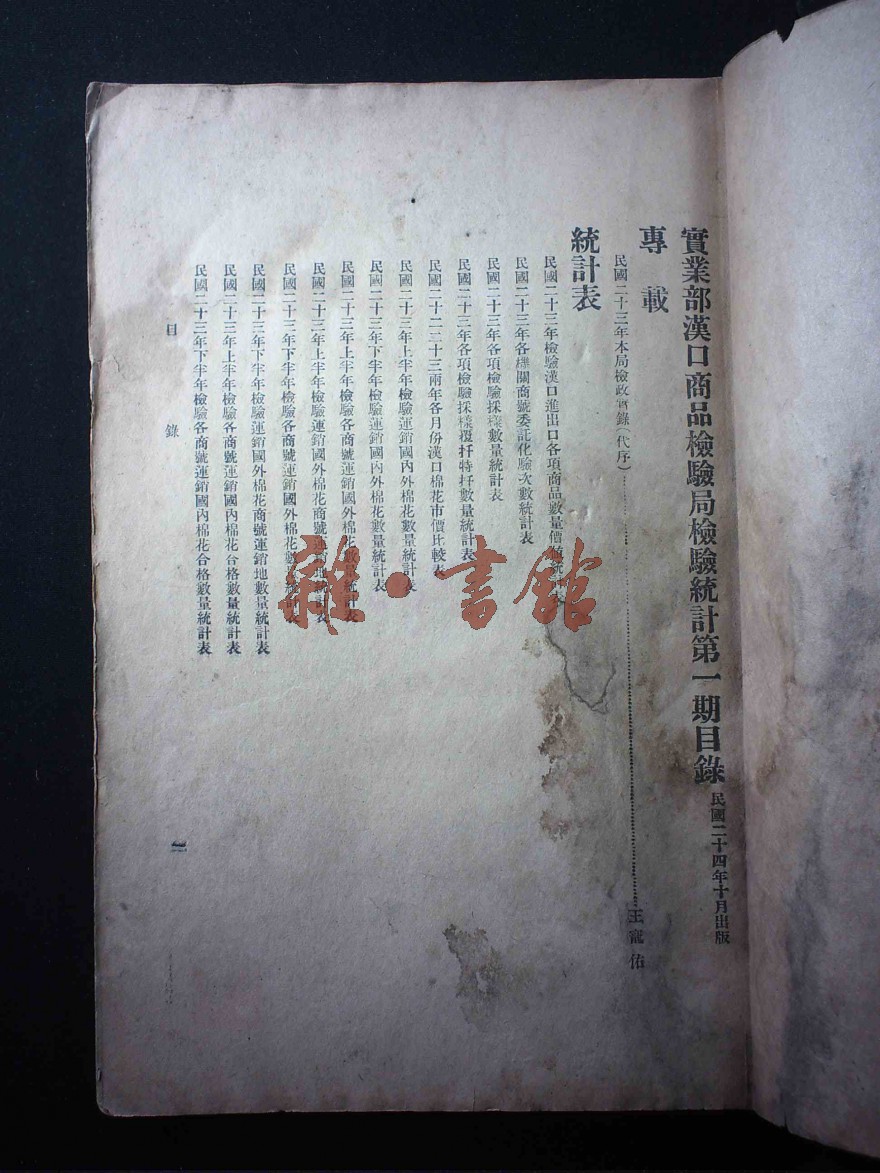 實業部漢口商品檢驗局檢驗統計第一期目錄
民國二十四年十月出版
專載
民國二十三年本局檢政實錄(代序)
王寵佑
統計表
民國二十三年檢驗漢口進出口各項商品數量價值
民國二十三年各機關商號委託化驗次數統計表
民國二十三年各項檢驗採樣數量統計表
民國二十三年各項檢驗採樣覆扦特扦數量統計表
民國二十二二十三兩年各月份漢口棉花市價比較表
民國二十三年上半年檢驗運銷國內外棉花數量統計表
民國二十三年下半年檢驗運銷國內外棉花數量統計表
民國二十三年上半年檢驗各商號運銷國外棉花數量統計表
民國二十三年上半年檢驗運銷國外棉花商號運銷地統計表
民國二十三年下半年檢驗各商號運銷國外棉花數量統計表
民國二十三年下半年檢驗運銷國外棉花商號運銷地數量統計表
民國二十三年上半年檢驗各商號運銷國內棉花合格數量統計表
民國二十三年下半年檢驗各商號運銷國內棉花合格數量統計表
目錄
雜·書館